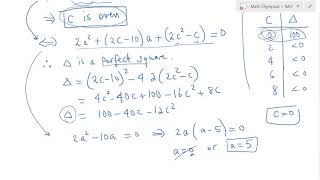 ⇔ C is even
⇔ 2a² + (2c-10)a + (2c²-c) = 0
∴ Δ is a perfect square.
Δ = (2c-10)² - 4·2(2c²-c)
= 4c² - 40c + 100 - 16c² + 8c
Δ = 100 - 40c - 12c²
2a² - 10a = 0 ⇒ 2a(a-5) = 0
a = 0 or a = 5
Math Olympiad + IMO
C Δ
0 100
2 <0
4 <0
6 <0
8 <0
C = 0